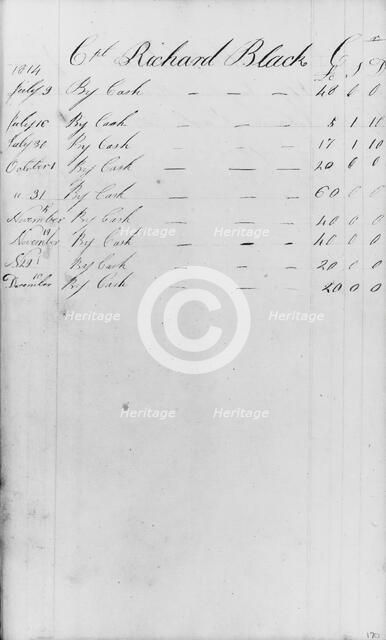 Cpt Richard Black Cr
1814 L S D
July 9 By Cash — — — 40 0 0
July 16 By Cash — — — 5 1 10
July 30 By Cash — — — 17 1 10
October 1 By Cash — — — 20 0 0
" 31 By Cash — — — 60 0 0
November By Cash — — — 40 0 0
November 19 By Cash — — — 40 0 0
By Cash — — — 20 0 0
December 10 By Cash — — — 20 0 0
Heritage Heritage
Heritage Heritage
©
Heritage
Heritage Heritage